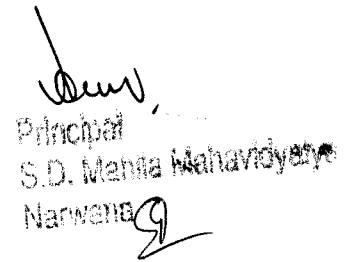 Principal
S.D. Mahila Mahavidyalya
Narwana